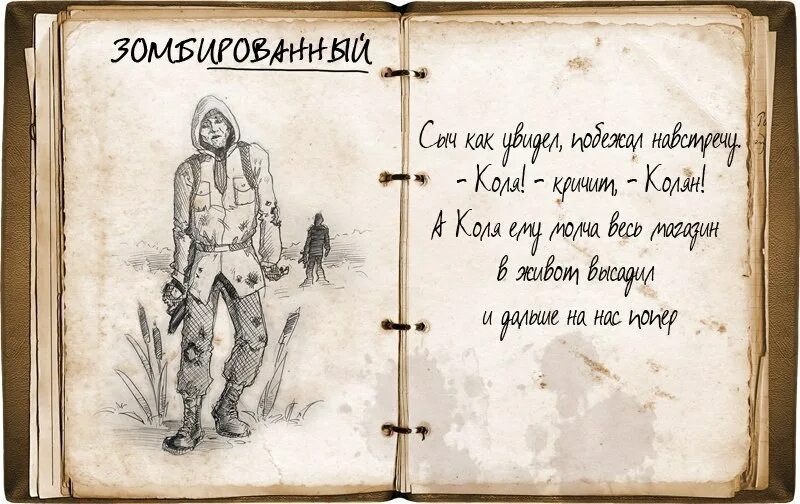 ЗОМБИРОВАННЫЙ
Сыч как увидел, побежал навстречу.
- Коля! - кричит, - Колян!
А Коля ему молча весь магазин
в живот высадил
и дальше на нас попер